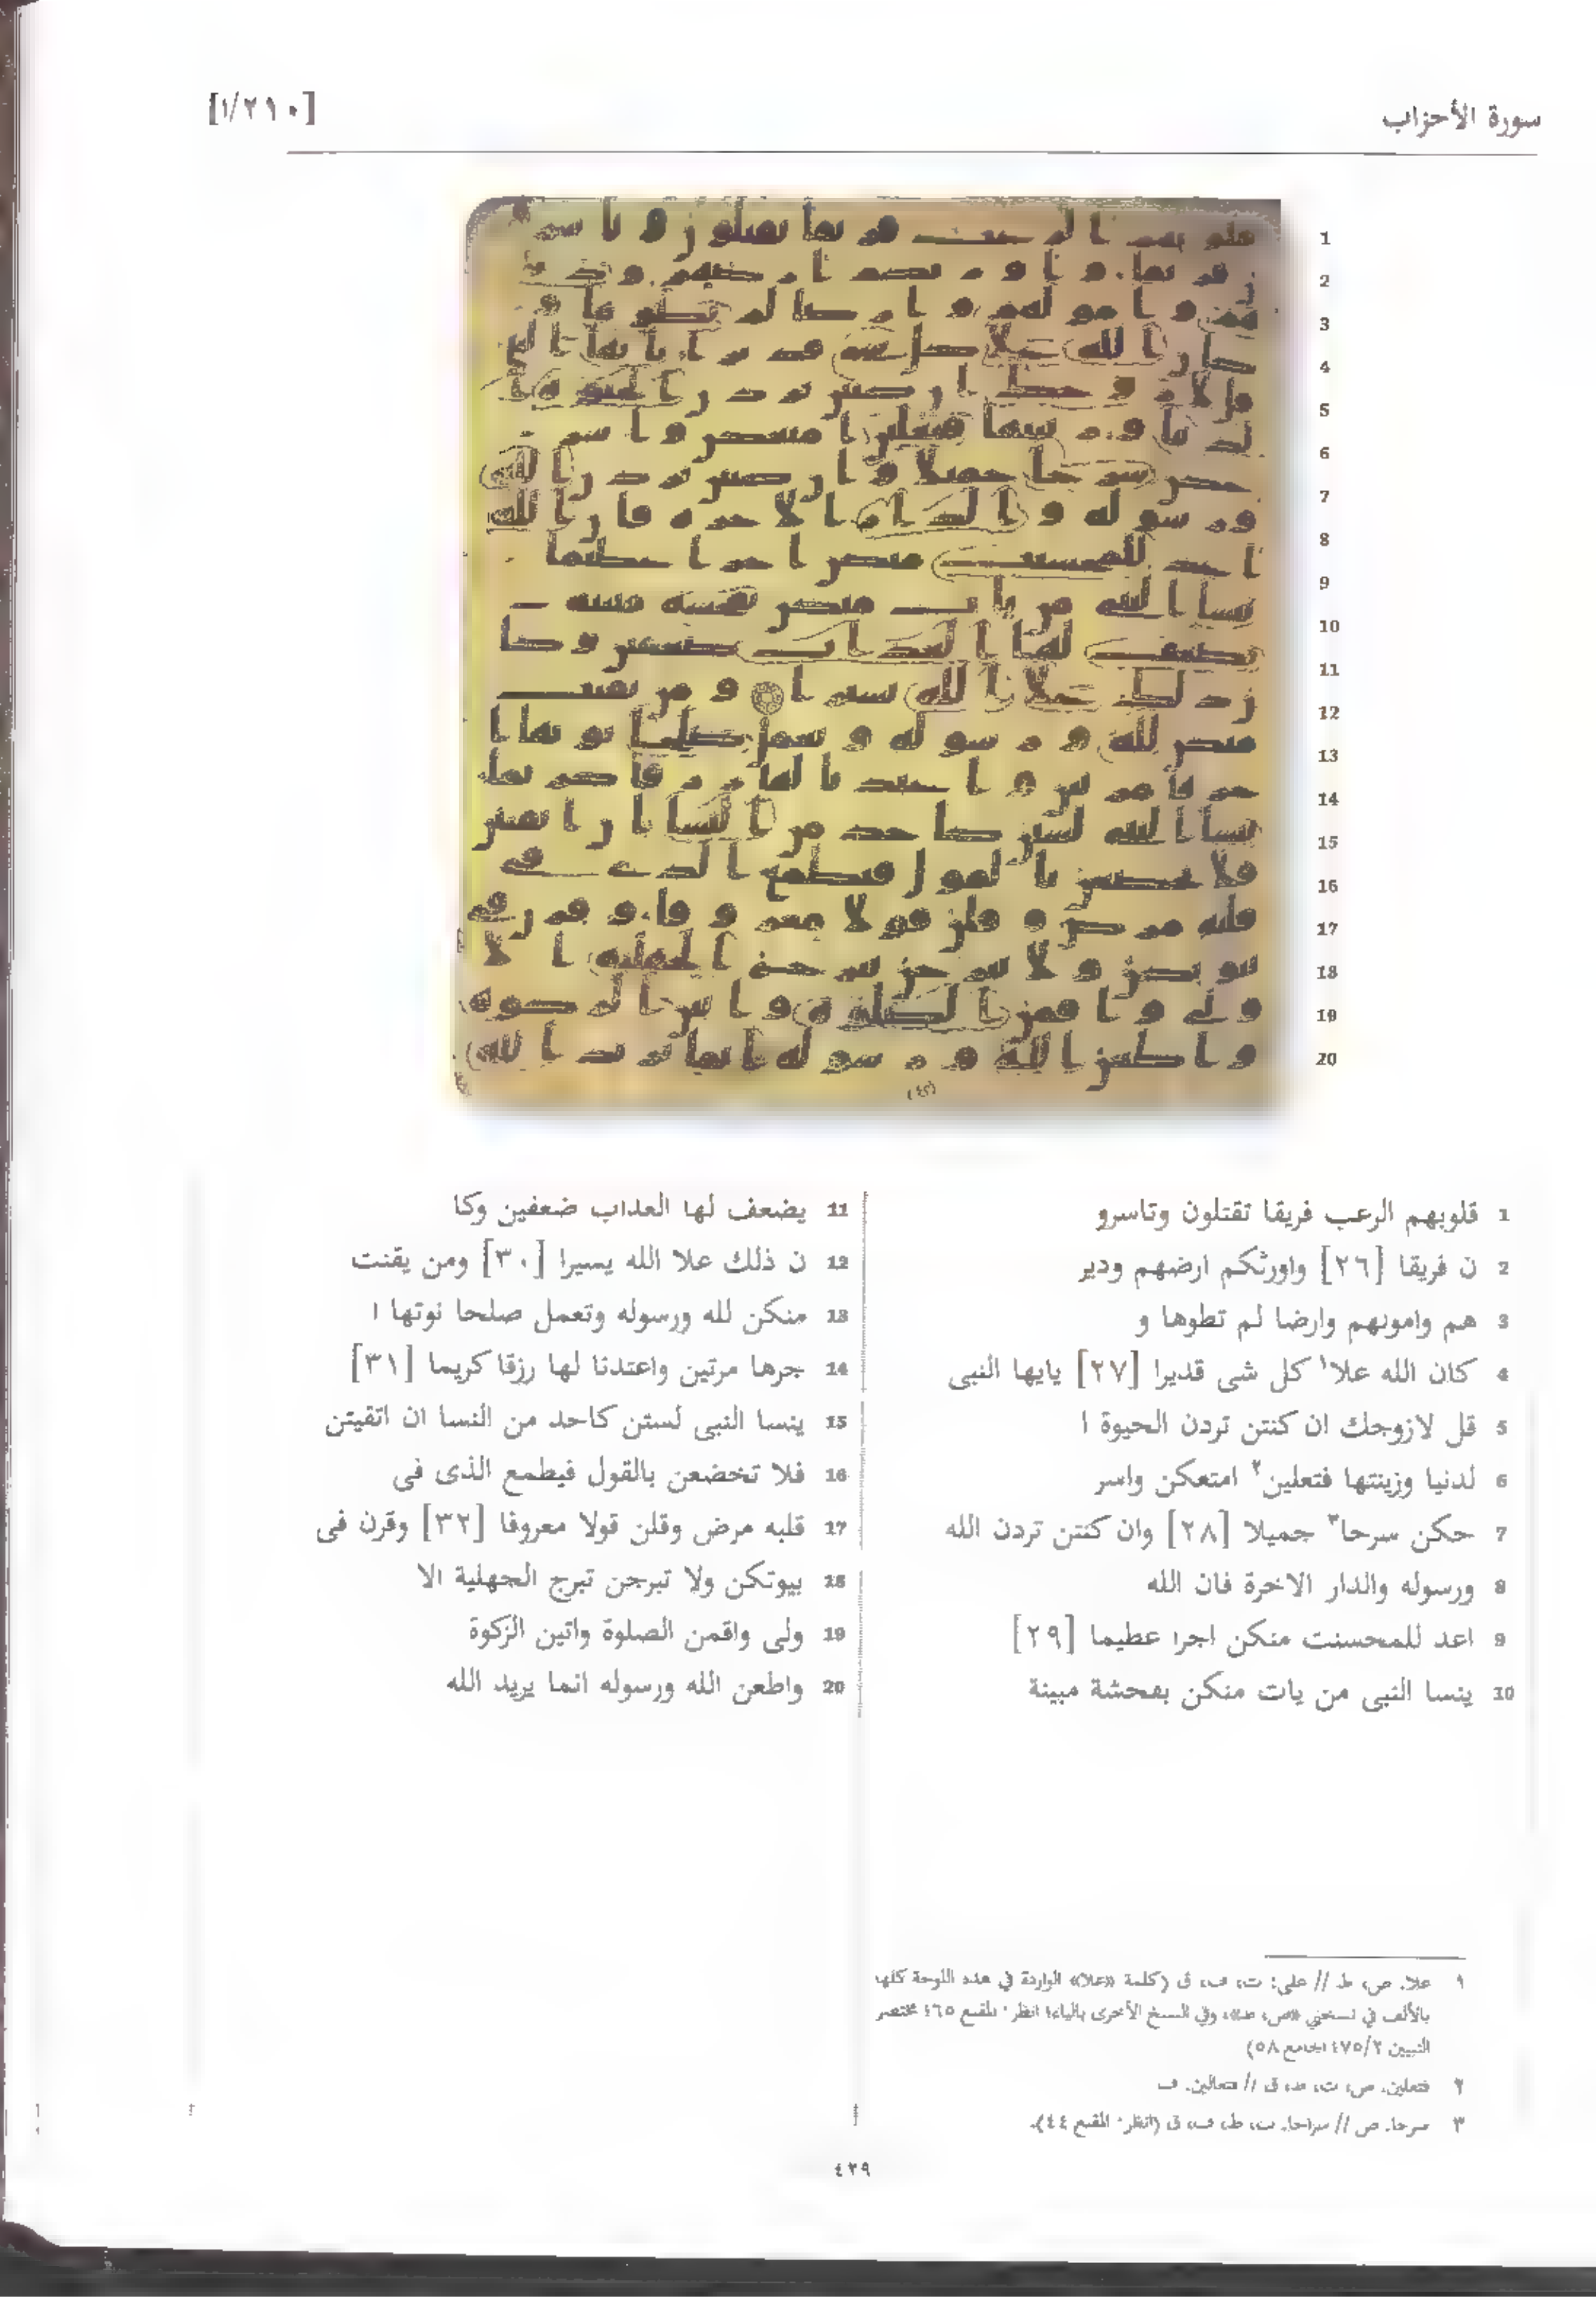 سورة الأحزاب
[١/٢١٠]
1 قلوبهم الرعب فريقا تقتلون وتاسرو
2 ن فريقا [٢٦] واورثكم ارضهم ودير
3 هم وامولهم وارضا لم تطوها و
4 كان الله علا١ كل شى قديرا [٢٧] يايها النبى
5 قل لازوجك ان كنتن تردن الحيوة ا
6 لدنيا وزينتها فتعلين٢ امتعكن واسر
7 حكن سرحا٣ جميلا [٢٨] وان كنتن تردن الله
8 ورسوله والدار الاخرة فان الله
9 اعد للمحسنت منكن اجرا عظيما [٢٩]
10 ينسا النبى من يات منكن بفحشة مبينة
11 يضعف لها العذاب ضعفين وكا
12 ن ذلك علا الله يسيرا [٣٠] ومن يقنت
13 منكن لله ورسوله وتعمل صلحا نوتها ا
14 جرها مرتين واعتدنا لها رزقا كريما [٣١]
15 ينسا النبى لستن كاحد من النسا ان اتقيتن
16 فلا تخضعن بالقول فيطمع الذى فى
17 قلبه مرض وقلن قولا معروفا [٣٢] وقرن فى
18 بيوتكن ولا تبرجن تبرج الجهلية الا
19 ولى واقمن الصلوة واتين الزكوة
20 واطعن الله ورسوله انما يريد الله
١ علا. ص، ط // على: ت، ف، ق (كلمة «علا» الواردة في هذه اللوحة كلها
بالألف في نسختي «ص، ط»، وفي النسخ الأخرى بالياء؛ انظر: المقنع ٤٦٥ مختصر
التبيين ٤٧٥/٢ الجامع ٥٨)
٢ فتعلين. ص، ت، ط، ق // فتعالين. ف
٣ سرحا. ص // سراحا. ت، ط، ف، ق (انظر: المقنع ٤٤).
٤٢٩